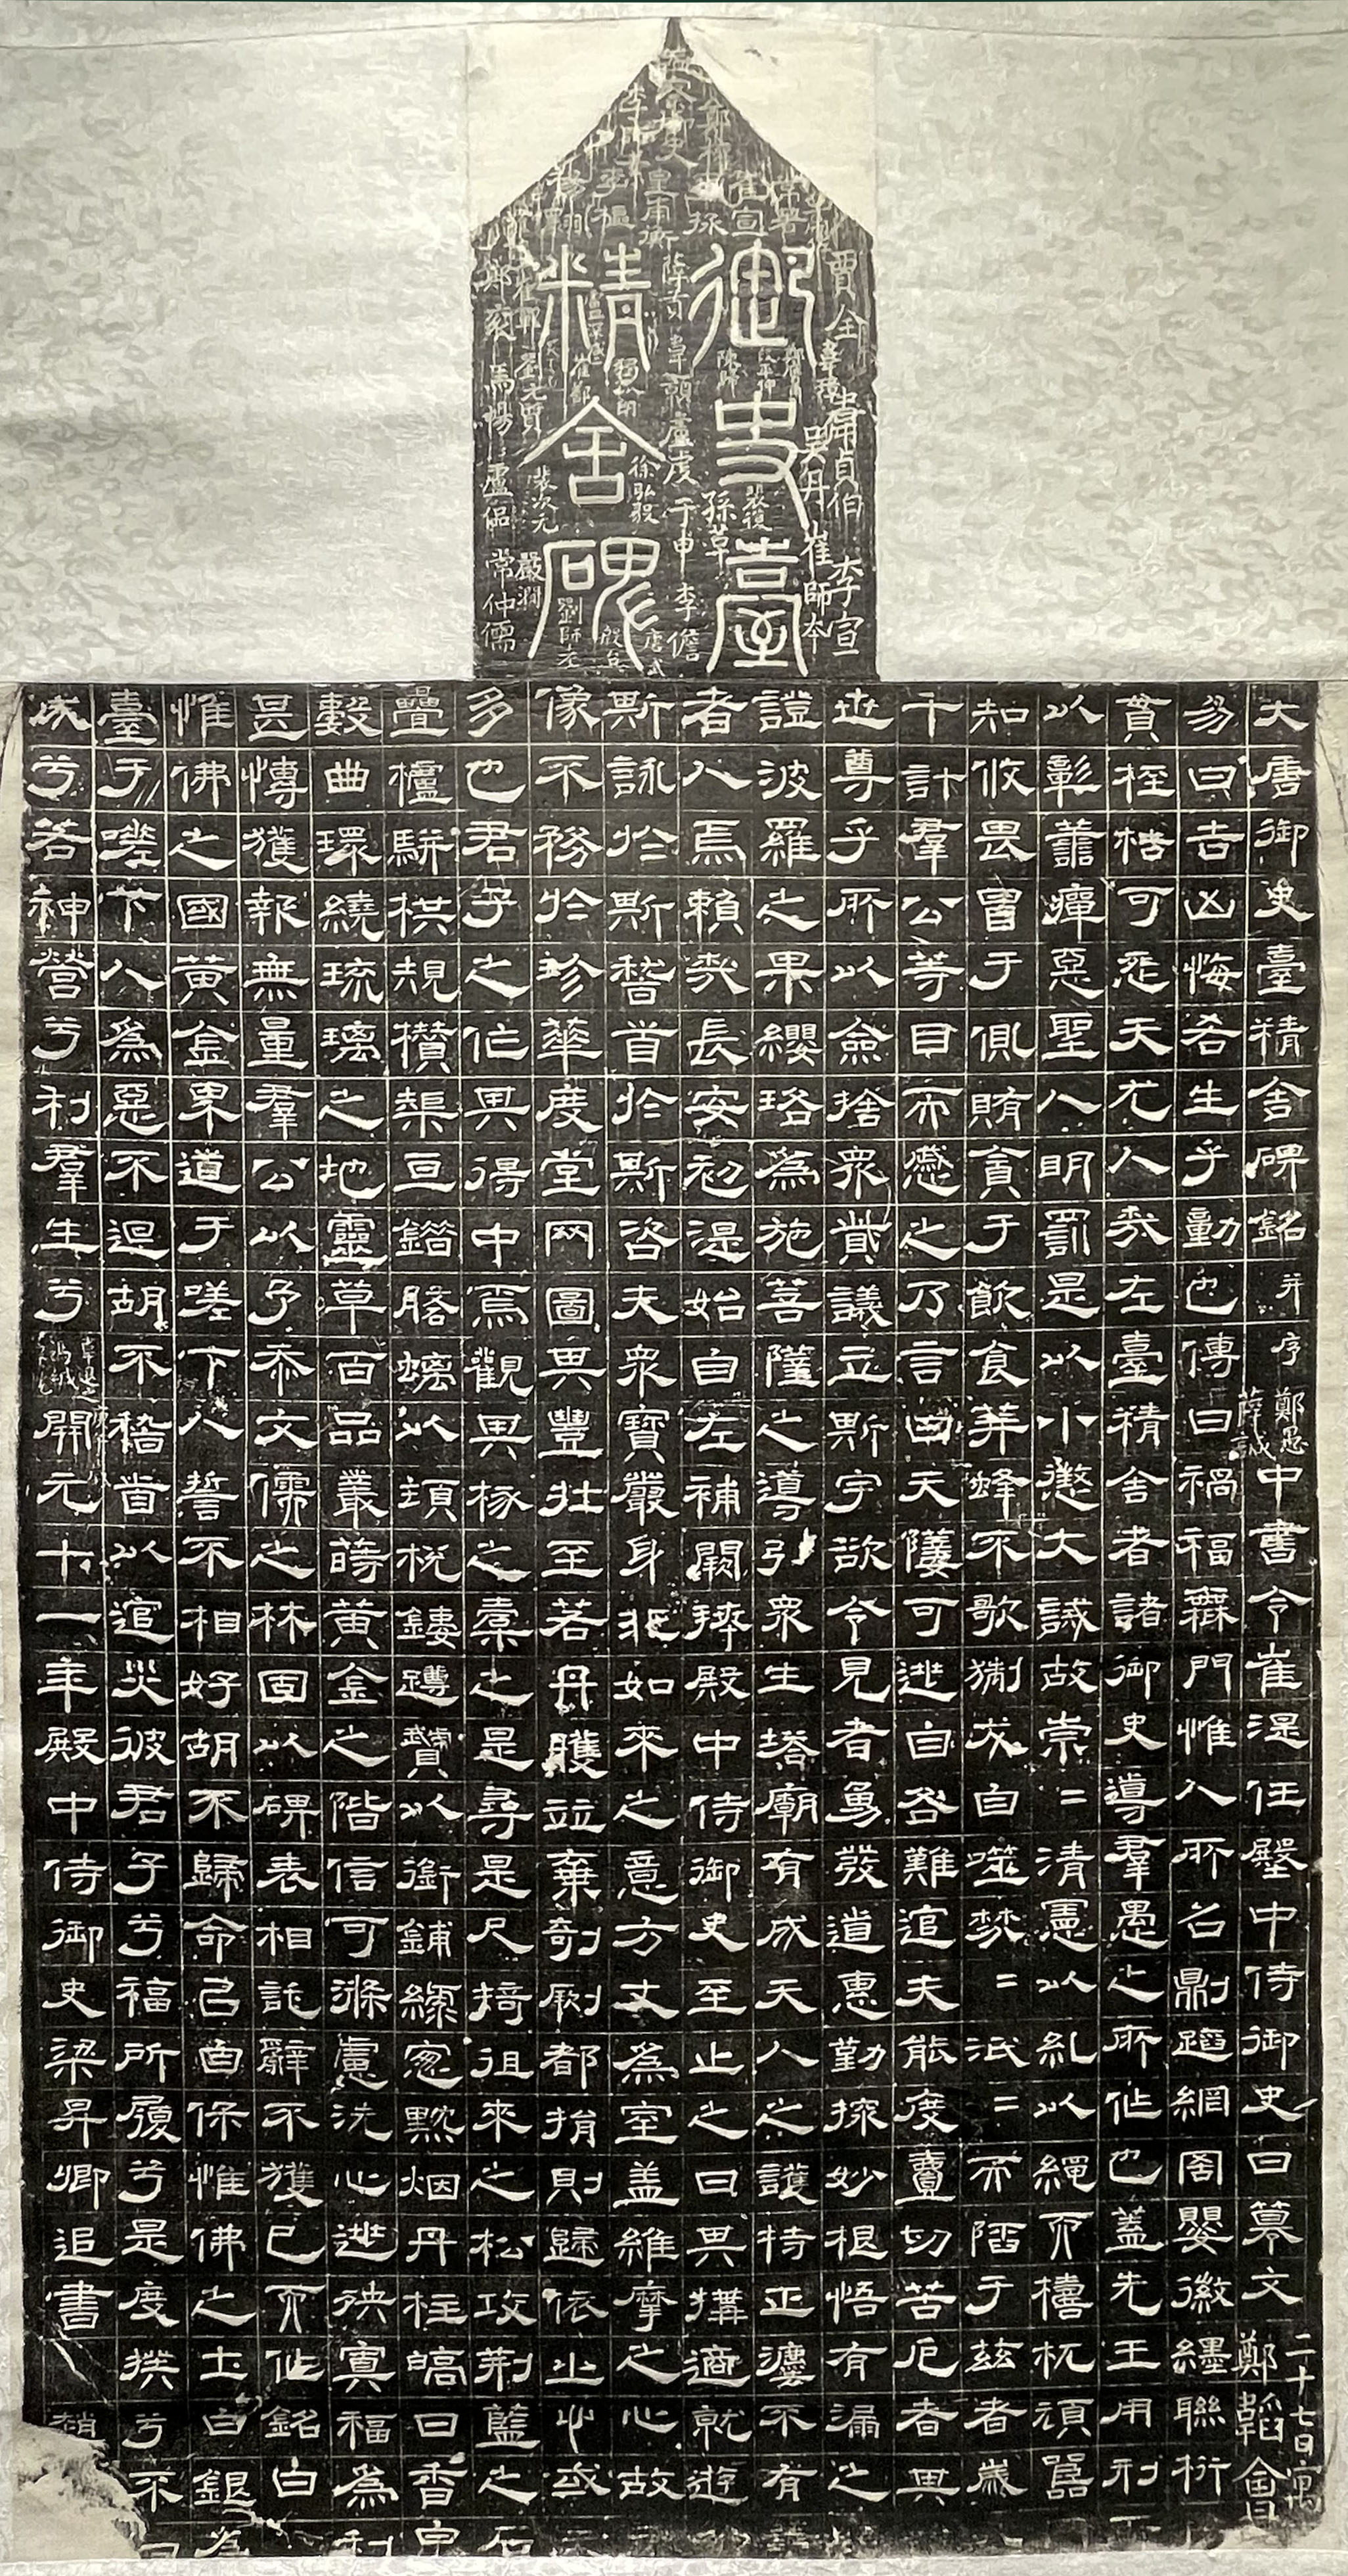 御史臺
精舍碑
賈全
韋貞伯
李宣
吳丹
崔師本
裴復
孫革
韋顗
盧虔
于申
李儋
徐弘毅
裴次元
劉元質
嚴澗
劉師老
馬暢
盧佋
常仲儒
皇甫衡
大唐御史臺精舍碑銘并序 鄭愚 薛誠 中書令崔湜任殿中侍御史日纂文 鄭韜 二十七日
易曰吉凶悔吝生乎動也傳曰禍福無門惟人所召則蹈網罟嬰徽纆聯桁
貫桎梏可怨天尤人哉左臺精舍者諸御史導羣愚之所作也蓋先王用刑
以彰善癉惡聖人明罰是以小懲大誡故崇二清憲以糺以繩而檮杌頑嚚
知攸畏冒于貨賄貪于飲食荓蜂不歌猘犬自噬焚二泯二而陷于茲者歲
千計羣公等目而感之乃言曰天孽可逃自咎難逭夫能度壹切苦厄者其
世尊乎所以僉捨衆貲議立斯宇欲令見者勇發道惠勤探妙根悟有漏之
證波羅之果纓珞為施菩薩之導引衆生塔廟有成天人之護持正法不有
者人焉賴哉長安初湜始自左補闕擢殿中侍御史至止之日其構適就遊
斯詠於斯稽首於斯咨夫衆寶嚴身非如來之意方丈為室盖維摩之心故
像不務於珍華度堂罔圖其豐壯至若丹雘竝棄剞劂都捐則歸依止心或
多也君子之作其得中焉觀其椓之橐之是尋是尺掎徂來之松攻荊藍之石
疊櫨駢栱規攢亘螭以棁鏤以銜鋪縹窗黕烟丹柱皜日香泉
數曲環繞琉璃之地靈草百品叢蒔黃金之階信可滌慮洗心逃殃寘福為利
甚博獲報無量羣公以予忝文儒之林固以碑表相託辭不獲已而作銘曰
惟佛之國黃金界道于嗟下人誓不相好胡不歸命已酋保惟佛之土白銀為
臺于嗟下人為惡不迴胡不稽首以逭災彼君子兮福所履兮是度揆兮不
成兮若神營兮利羣生兮 開元十一年殿中侍御史梁昇卿追書 趙